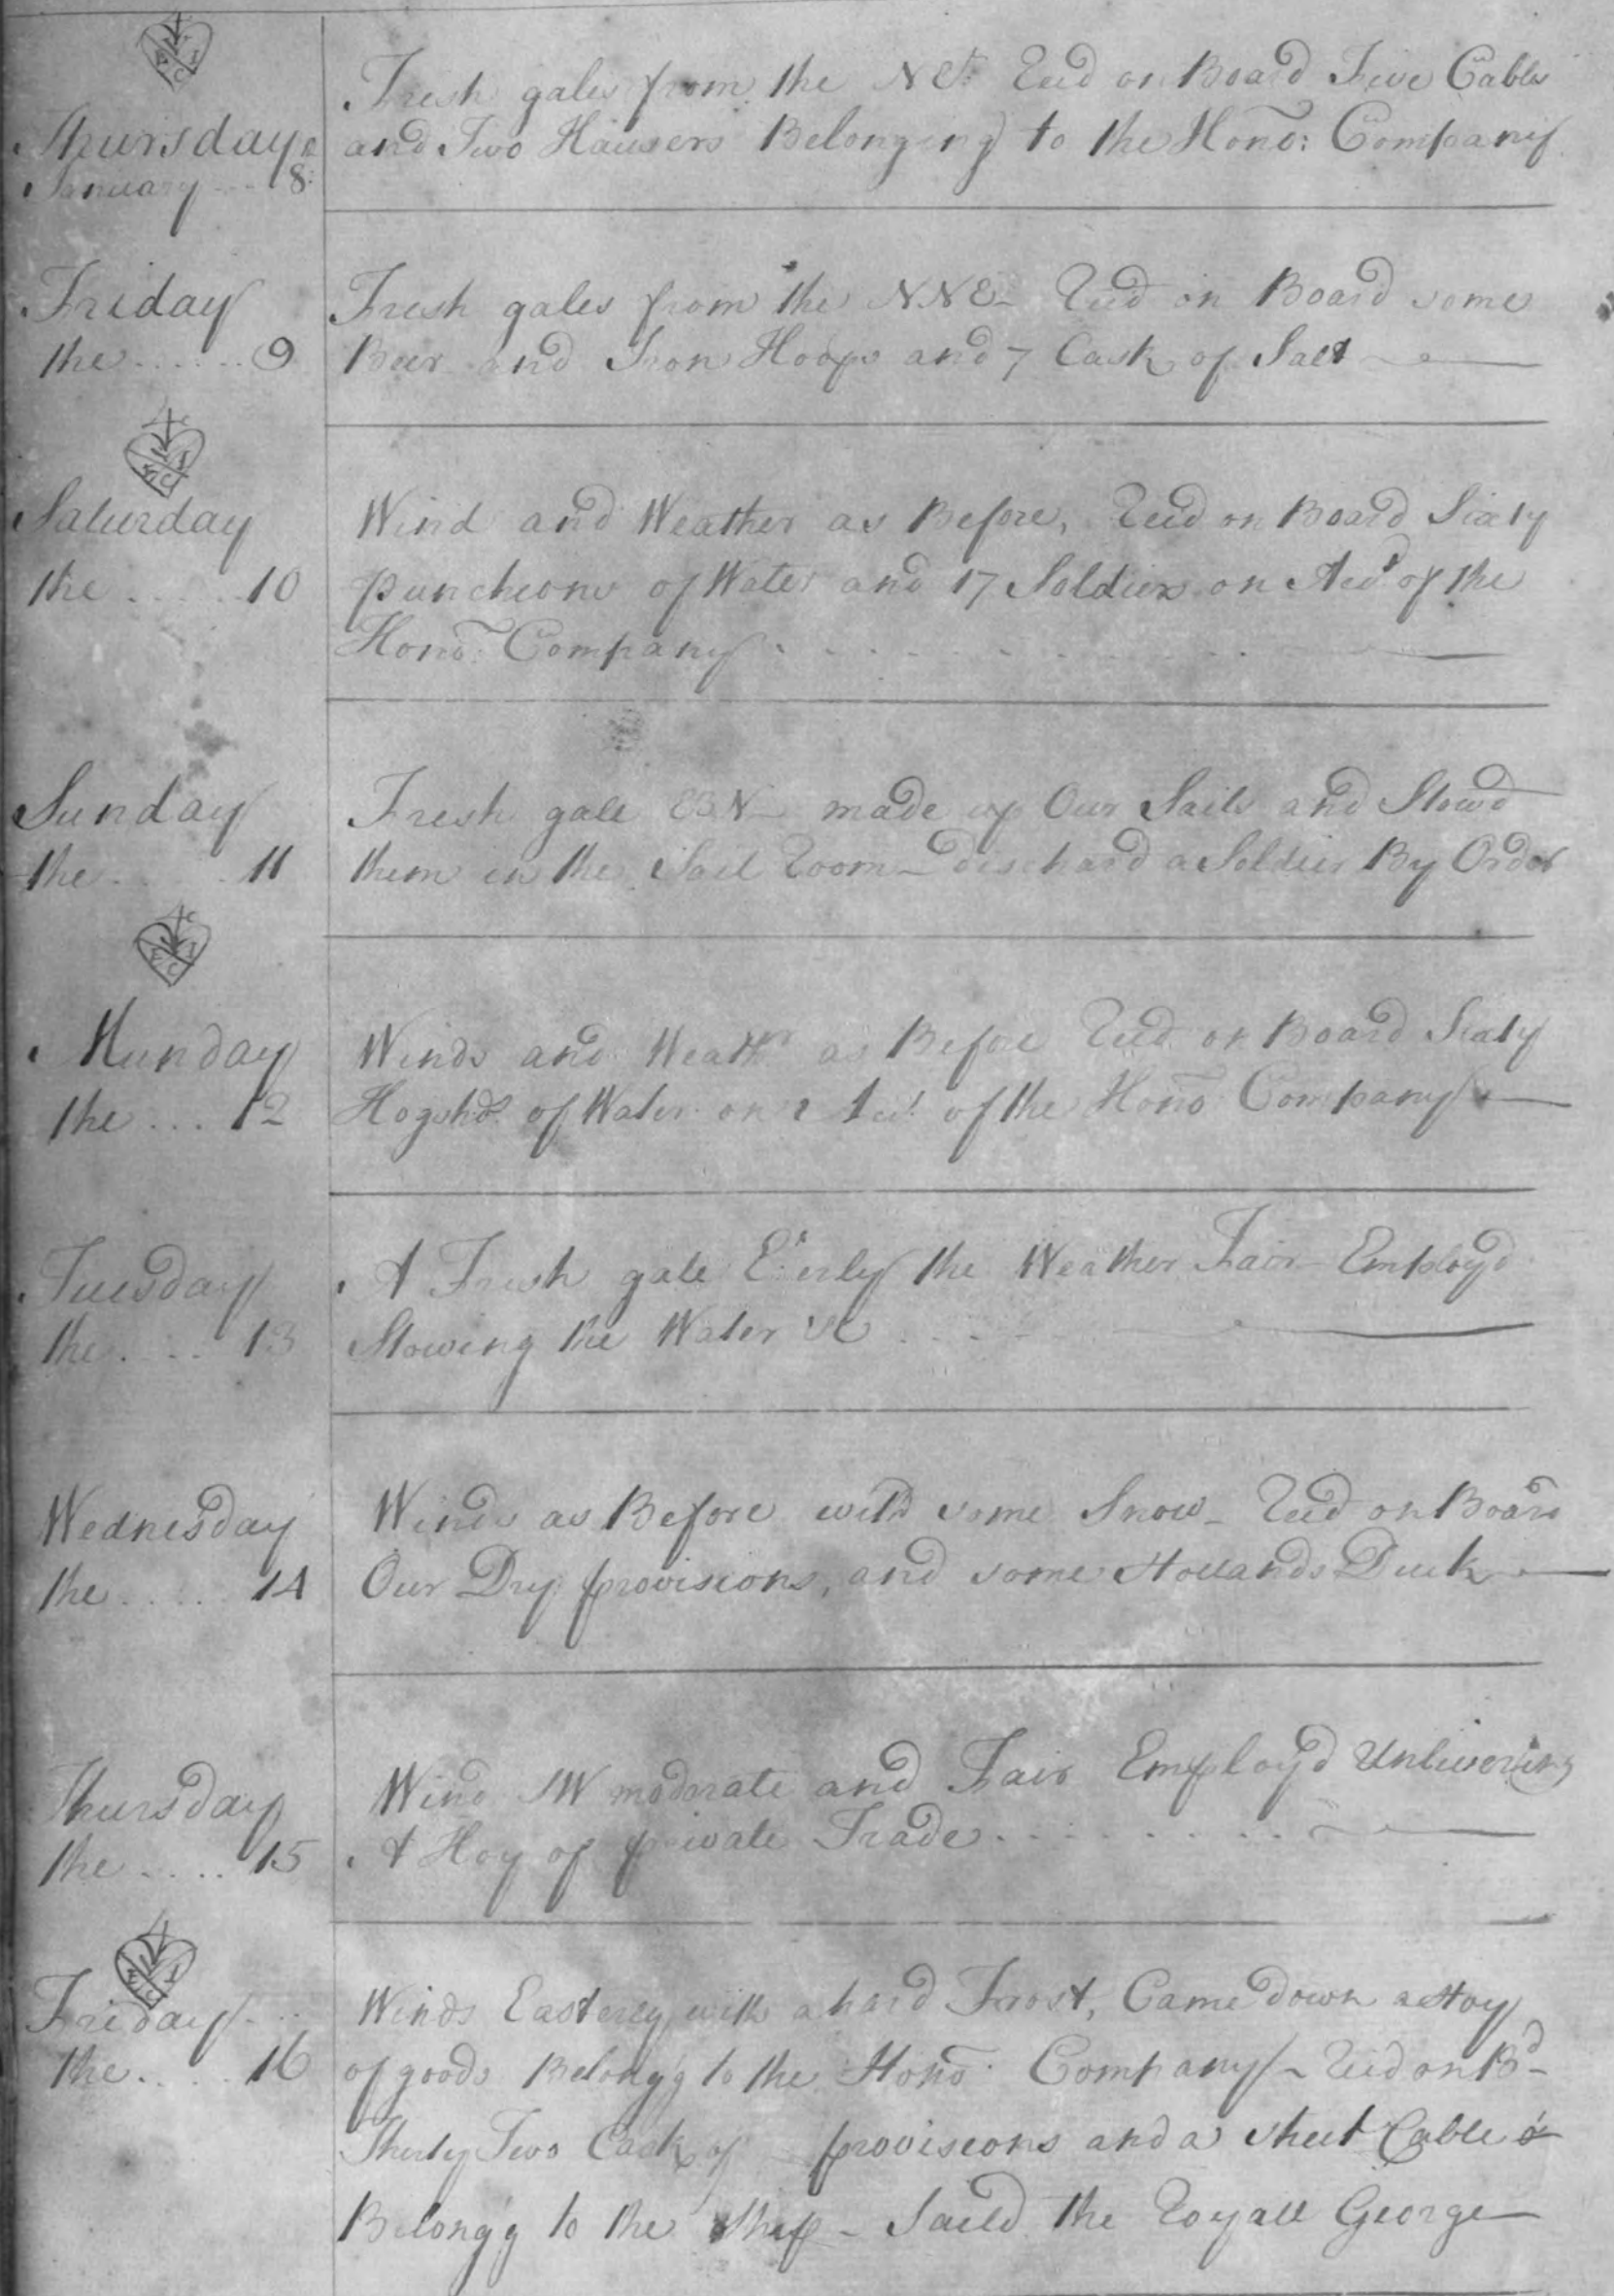 Thursday
January 8
Fresh gales from the NEt. Recd on Board Five Cables
and Two Hausers Belonging to the Hono: Company
Friday
the 9
Fresh gales from the NNE Recd on Board some
Beer and Iron Hoops and 7 Cask of Salt
Saturday
the 10
Wind and Weather as Before, Recd on Board Sixty
puncheons of Water and 17 Soldiers on Acct of the
Hono: Company
Sunday
the 11
Fresh gale EBN made up Our Sails and Stowd
them in the Sail Room dischard a Soldier By Order
Munday
the 12
Winds and Weathr as Before Recd on Board Sixty
Hogshds of Water on Acct of the Hono Company
Tuesday
the 13
A Fresh gale Eterly the Weather Fair Employd
Stowing the Water &c
Wednesday
the 14
Winds as Before with some Snow Recd on Board
Our Dry provisions, and some Hollands Duck
Thursday
the 15
Wind SW moderate and Fair Employd Unlivering
A Hoy of private Trade
Friday
the 16
Winds Easterly with a hard Frost, Came down a Hoy
of goods Belong'g to the Hono Company Recd on Bd
Thirty Two Cask of provisions and a sheet Cable
Belong'g to the Ship Saild the Royall George